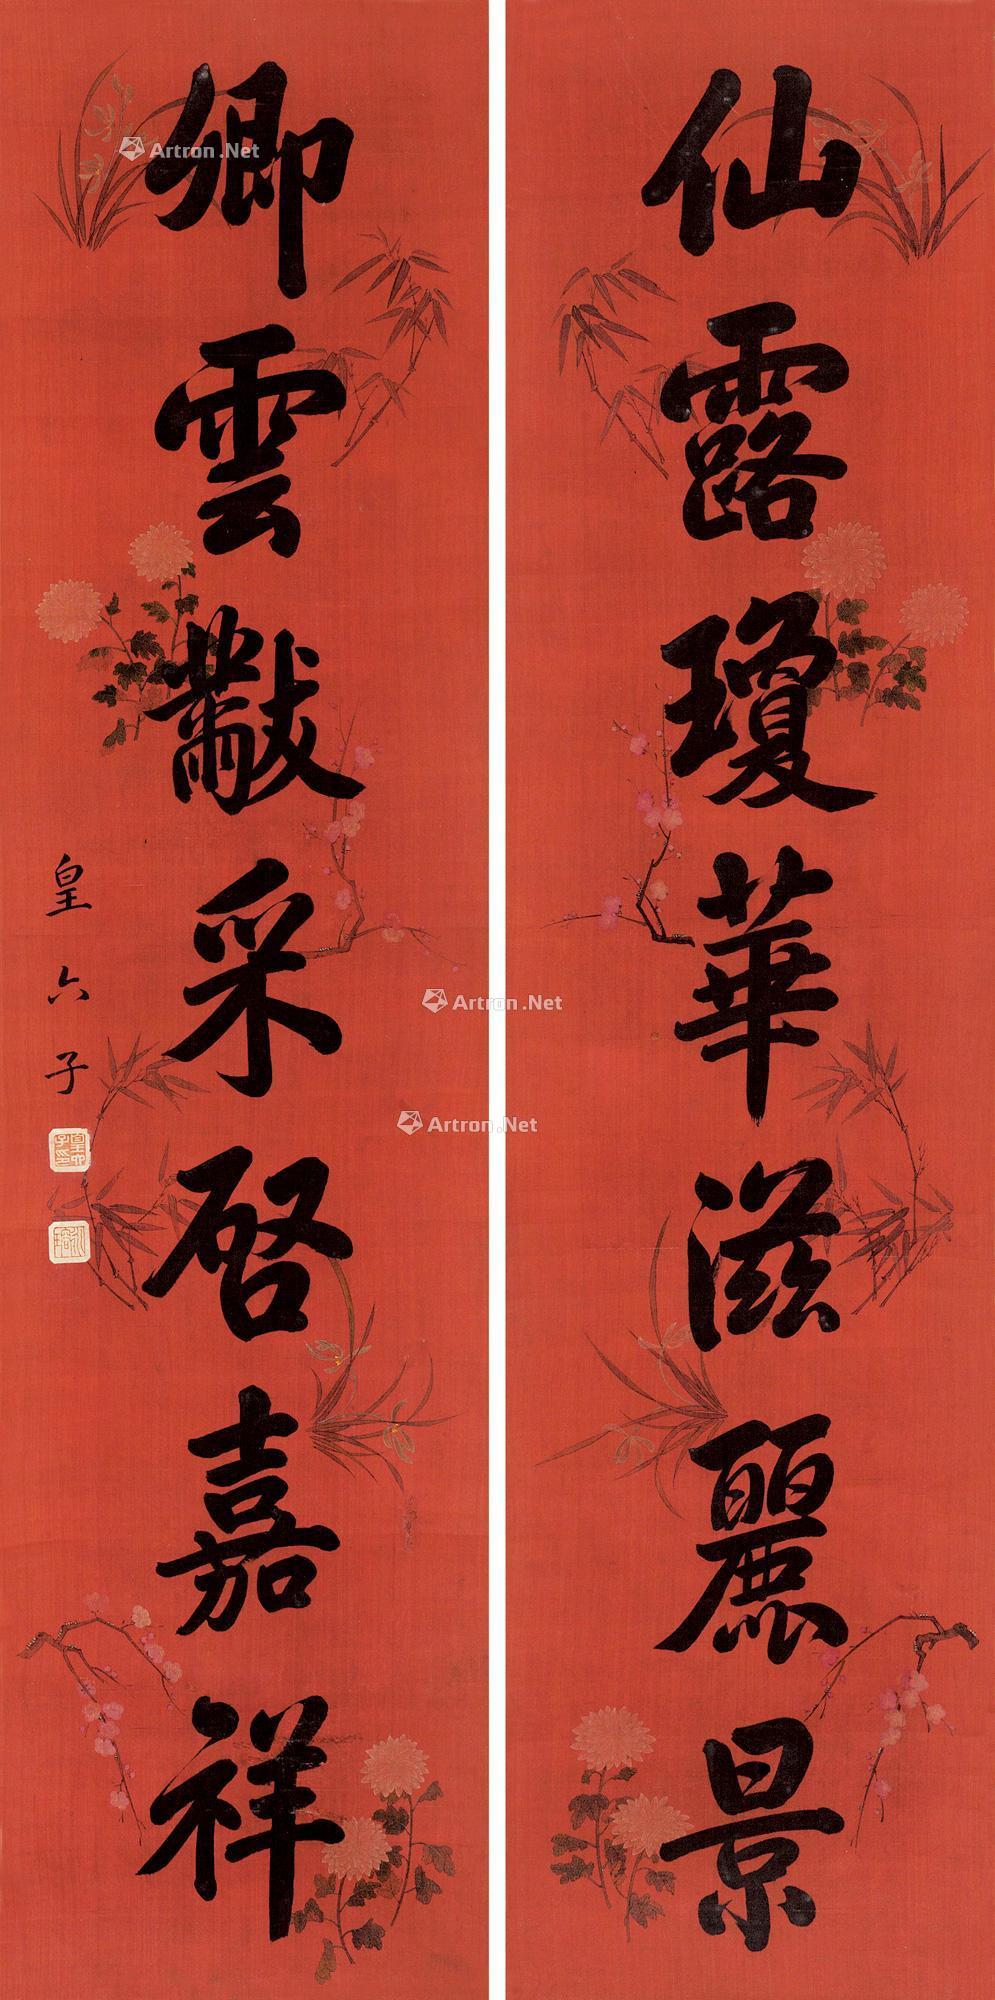 仙露瓊華滋麗景
卿雲黻采啓嘉祥
皇六子
皇六子印
Artron.Net
Artron.Net
Artron.Net